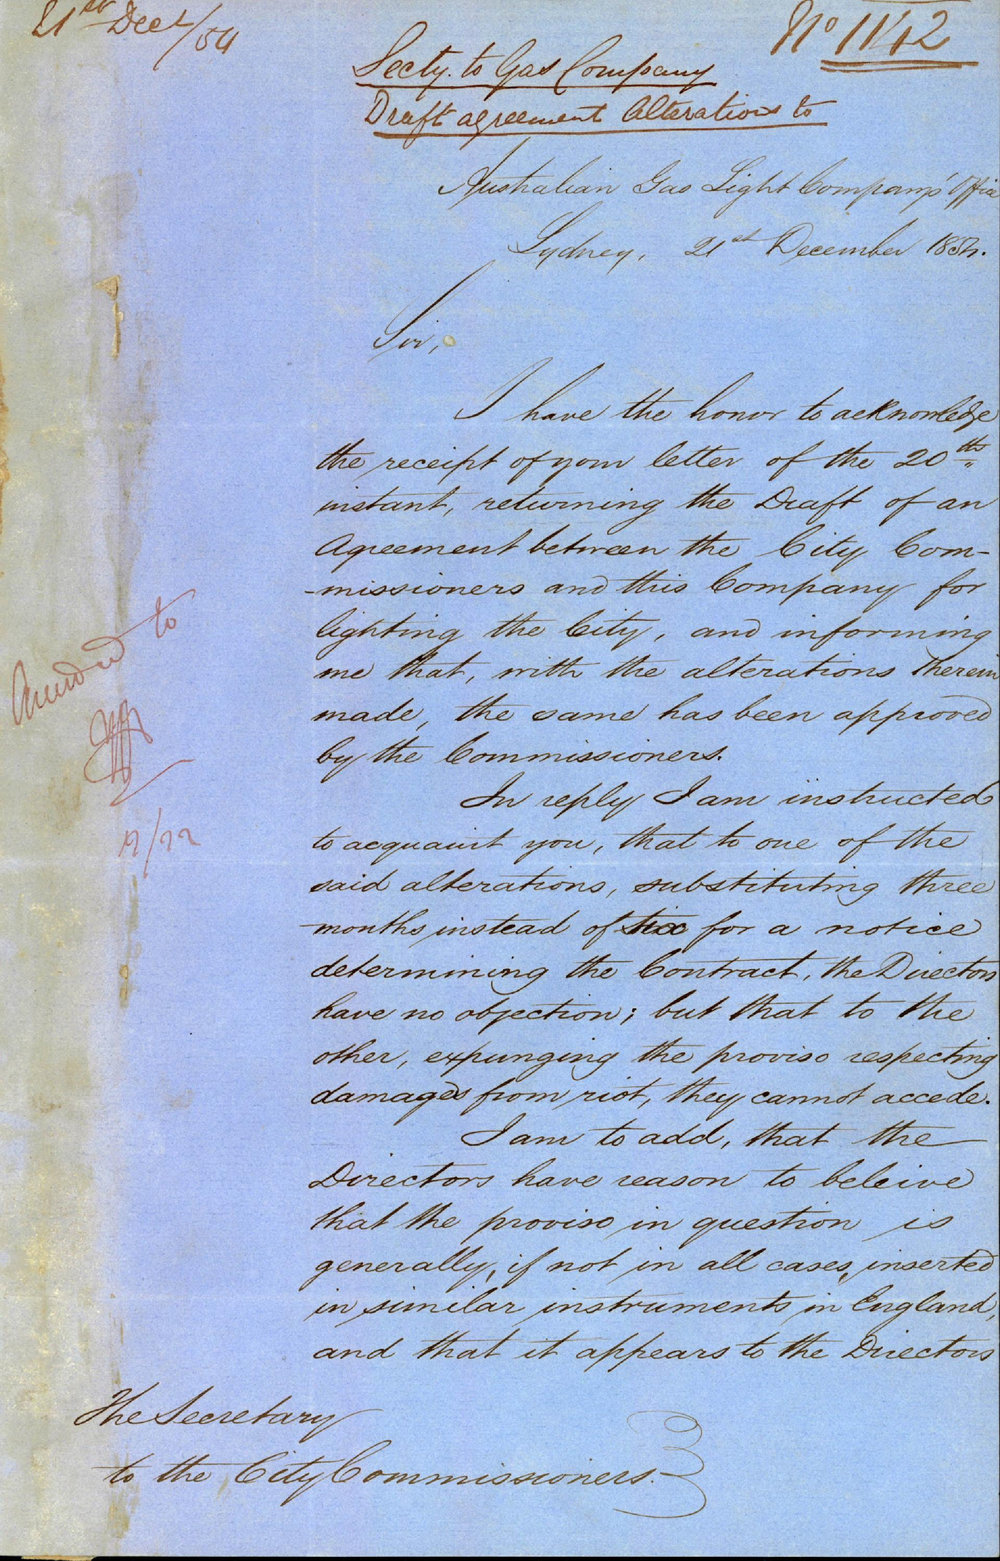 21st Decr/54
No 1142
Secty. to Gas Company
Draft agreement Alterations to
Australian Gas Light Company's Office
Sydney, 21st December 1854.
Sir,
I have the honor to acknowledge
the receipt of your letter of the 20th
instant, returning the Draft of an
Agreement between the City Com-
-missioners and this Company for
lighting the City, and informing
me that, with the alterations therein
made, the same has been approved
by the Commissioners.
In reply I am instructed
to acquaint you, that to one of the
said alterations, substituting three
months instead of six for a notice
determining the Contract, the Directors
have no objection; but that to the
other, expunging the proviso respecting
damages from riot, they cannot accede.
I am to add, that the
Directors have reason to beleive
that the proviso in question is
generally, if not in all cases, inserted
in similar instruments in England,
and that it appears to the Directors
The Secretary
to the City Commissioners.
to